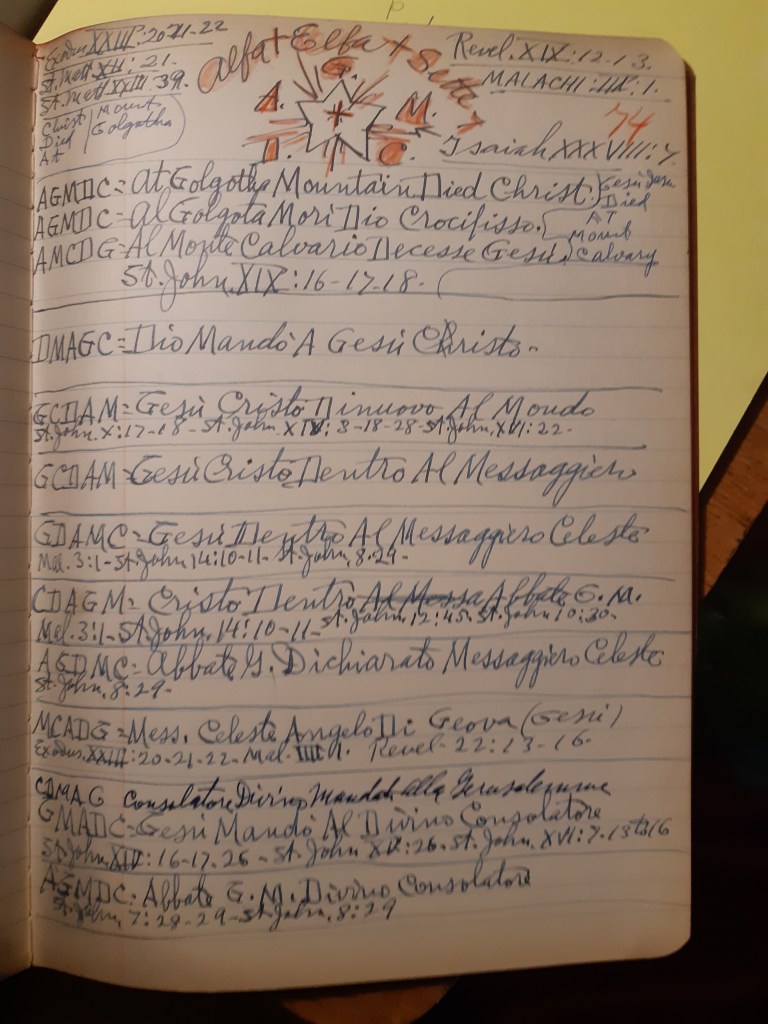 Exodus XXIII:20-21-22
St. Matt XII:21.
St. Matt XXIII:39.
Christ
Died
At
Mount
Golgotha
Alfa + Elfa + Sette
G.
A. + M.
D. C.
Revel. XIX:12-13.
MALACHI:III:1.
74
Isaiah XXXVIII:7.
AGMDC=At Golgotha Mountain Died Christ.
AGMDC=Al Golgota Morì Dio Crocifisso.
AMCDG=Al Monte Calvario Decesse Gesù.
Died
AT
Mount
Calvary
St. John, XIX:16-17-18.
DMAGC=Dio Mandò A Gesù Christo-
GCDAM=Gesù Cristo Dinuovo Al Mondo
St. John, X:17-18-St. John, XIV:3-18-28-St. John, XVI:22.
GCDAM=Gesù Cristo Dentro Al Messaggiero
GDAMC=Gesù Dentro Al Messaggiero Celeste
Mal. 3:1-St. John, 14:10-11-St. John, 8:29-
CDAGM=Cristo Dentro Al Messa Abbate G. M.
Mal. 3:1-St. John, 14:10-11-St. John, 12:45-St. John 10:30-
AGDMC=Abbate G. Dichiarato Messaggiero Celeste
St. John, 8:29-
MCADG=Mess. Celeste Angelo Di Geova (Gesù)
Exodus, XXIII:20-21-22-Mal. III:1. Revel-22:13-16-
CDMAG Consolatore Divino Mandato Alla Gerusalemme
GMADC=Gesù Mandò Al Divino Consolatore
St. John, XIV:16-17-26-St. John XV:26-St. John, XVI:7-13 to 16
AGMDC=Abbate G. M. Divino Consolatore
St. John, 7:28-29-St. John, 8:29